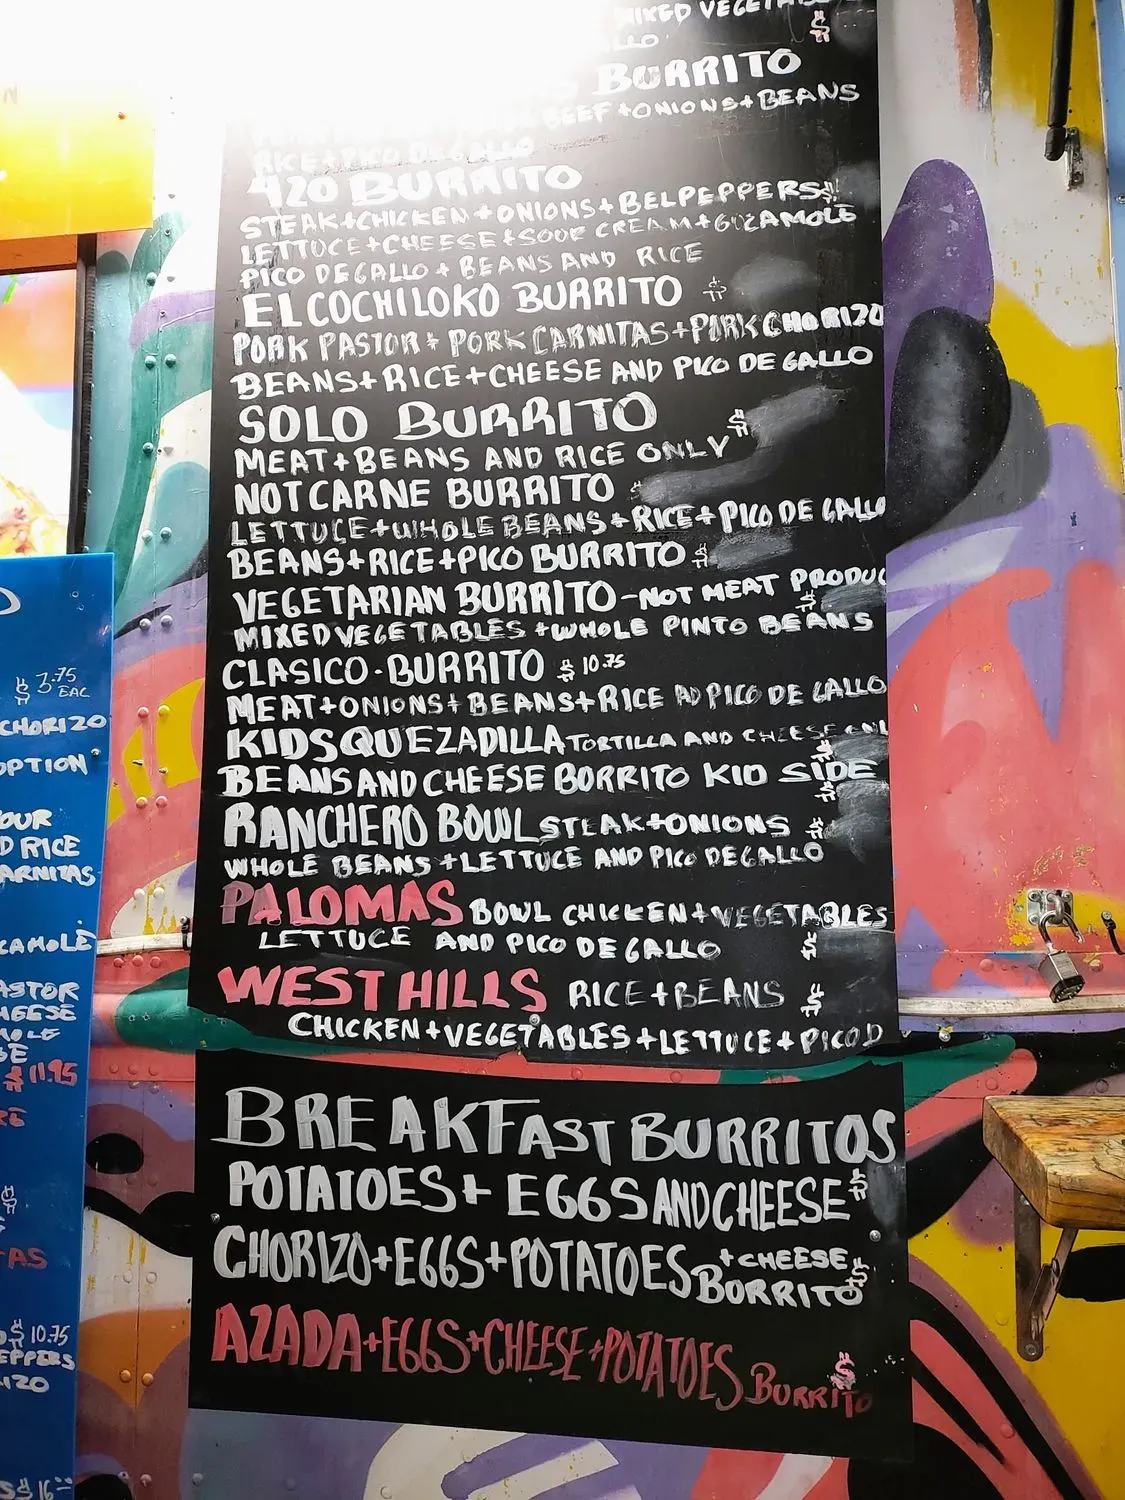 MIXED VEGETAB
LLO
$
BURRITO
BEEF+ONIONS+BEANS
RICE+PICO DE GALLO
420 BURRITO
STEAK+CHICKEN+ONIONS+BELPEPPERS $
LETTUCE+CHEESE+SOUR CREAM+GUZAMOLE
PICO DE GALLO + BEANS AND RICE
EL COCHILOKO BURRITO $
PORK PASTOR + PORK CARNITAS+PORK CHORIZO
BEANS+RICE+CHEESE AND PICO DE GALLO
SOLO BURRITO $
MEAT+BEANS AND RICE ONLY
NOTCARNE BURRITO $
LETTUCE+WHOLE BEANS+RICE+PICO DE GALLO
BEANS+RICE+PICO BURRITO $
VEGETARIAN BURRITO-NOT MEAT PRODUC
$
MIXED VEGETABLES +WHOLE PINTO BEANS
CLASICO-BURRITO $ 10.75
MEAT+ONIONS+BEANS+RICE AD PICO DE GALLO
KIDS QUEZADILLA TORTILLA AND CHEESE ONL
$
BEANS AND CHEESE BORRITO KID SIDE
$
RANCHERO BOWL STEAK+ONIONS $
WHOLE BEANS+LETTUCE AND PICO DEGALLO
PALOMAS BOWL CHICKEN+VEGETABLES
LETTUCE AND PICO DE GALLO $
WEST HILLS RICE+BEANS $
CHICKEN+VEGETABLES+LETTUCE+PICO D
BREAKFAST BURRITOS
POTATOES+ EGGS AND CHEESE $
CHORIZO+EGGS+POTATOES +CHEESE $
BORRITO
AZADA+EGGS+CHEESE+POTATOES BURRITO $
$ 3.75
EAC
CHORIZO
OPTION
OUR
D RICE
ARNITAS
CAMOLE
ASTOR
HEESE
MOLE
SE
$ 11.95
RE
$
TAS
$ 10.75
EPPERS
IZO
$ 16